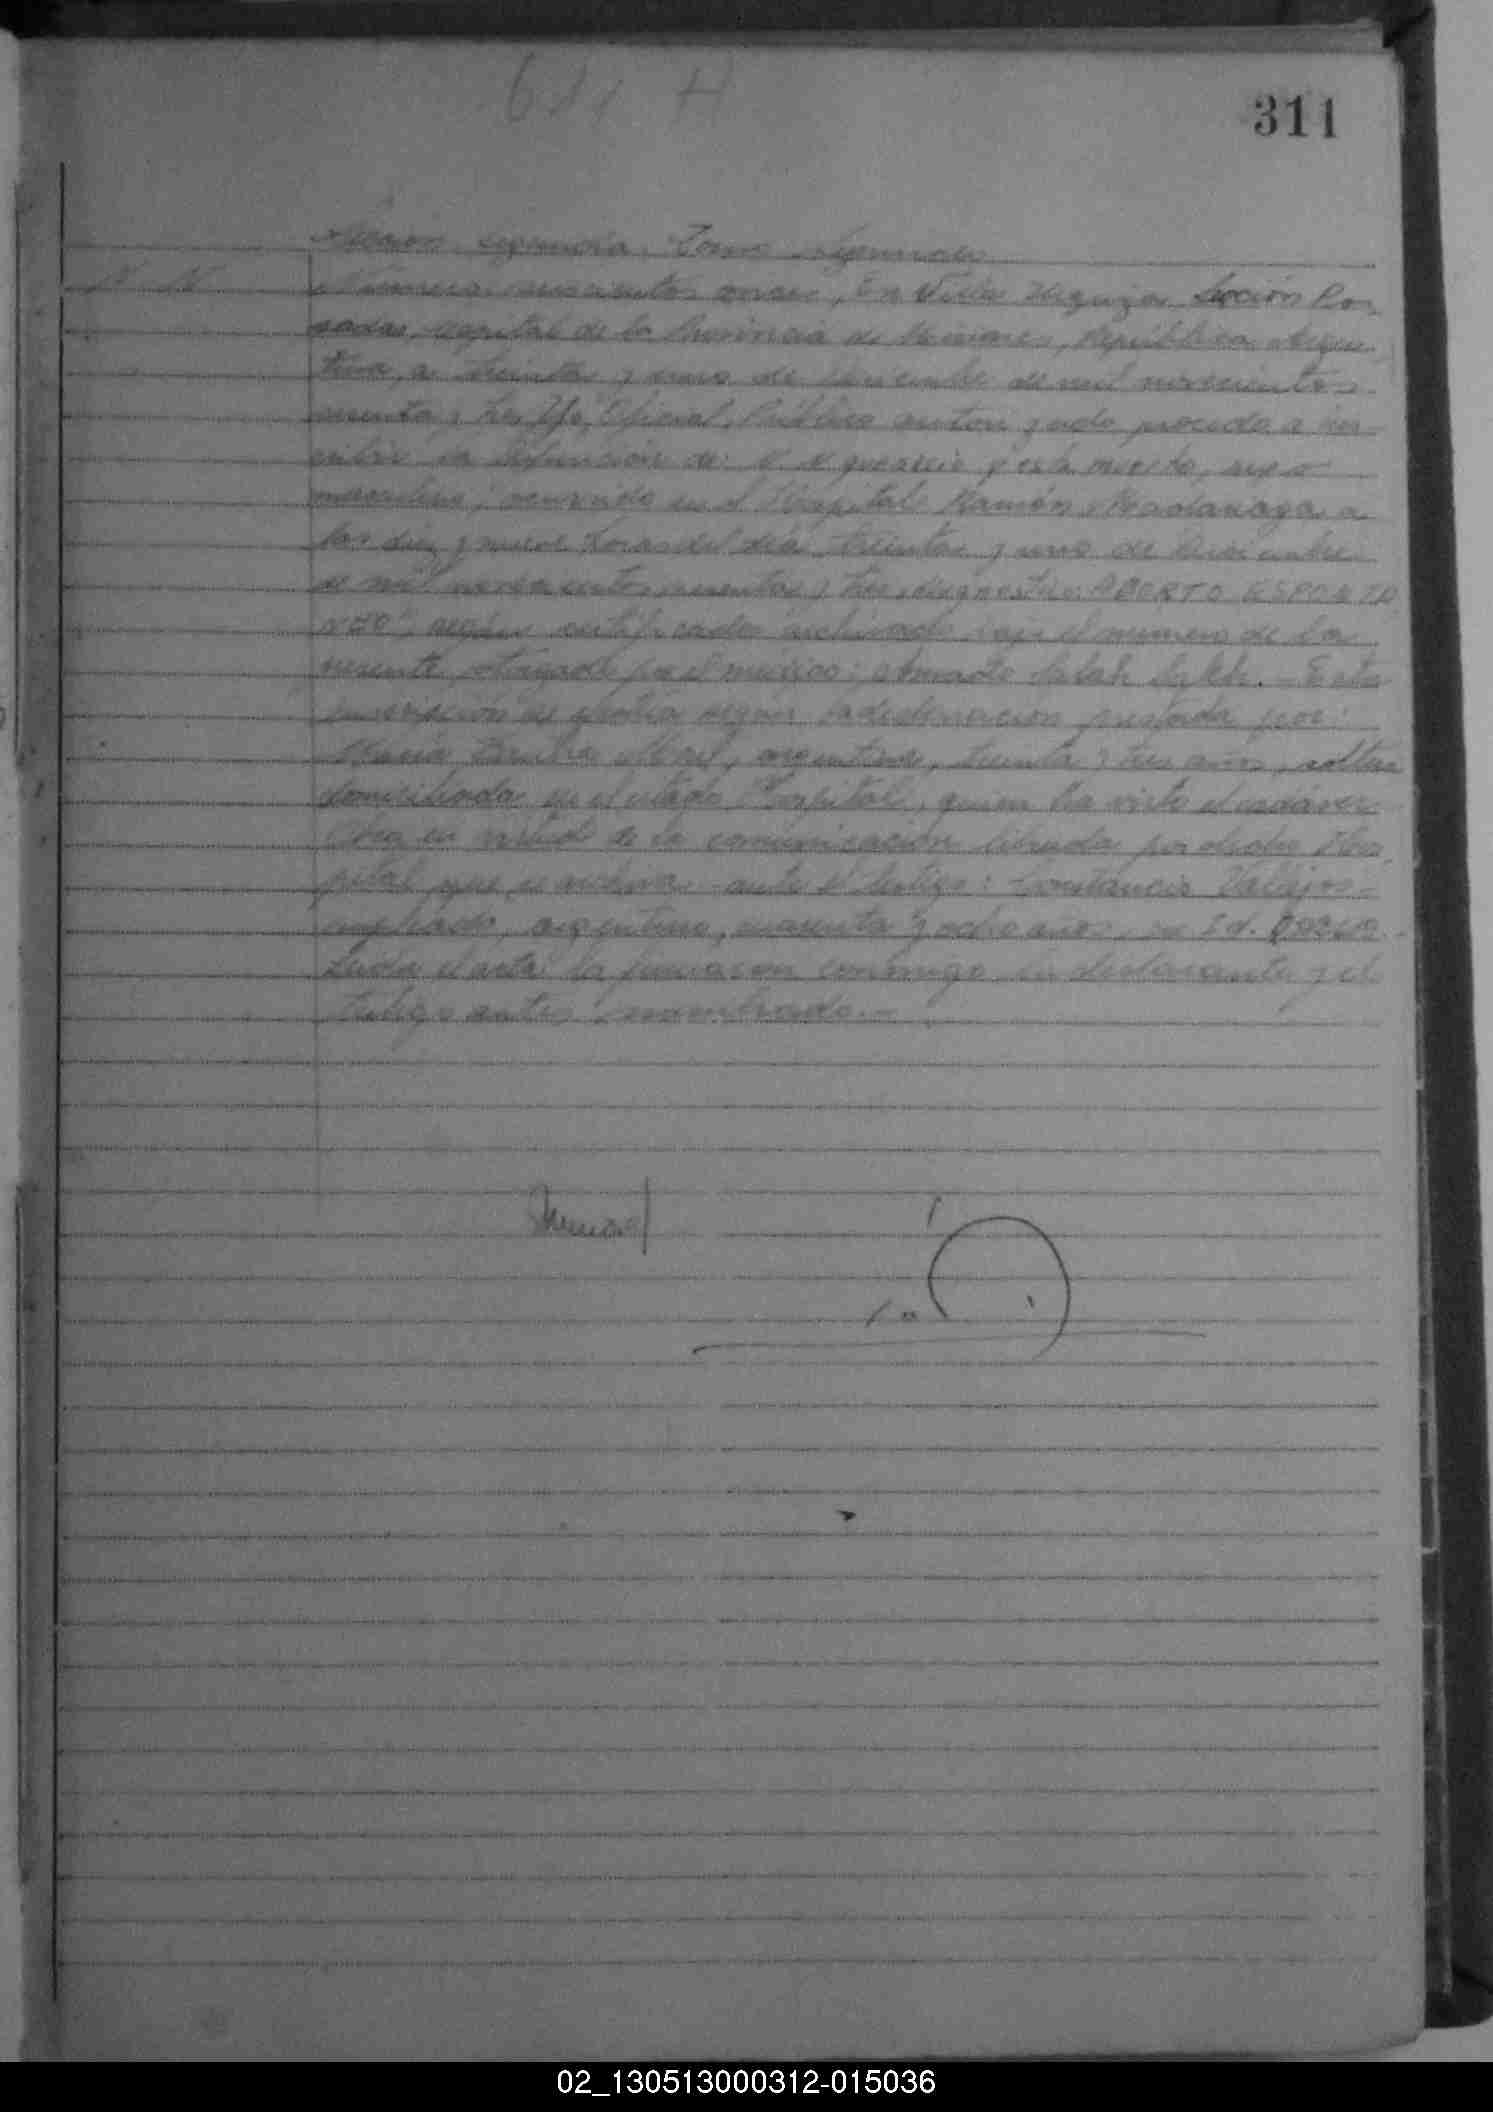 611 H
311
Sección segunda. Tomo Segundo
N. N. Número seiscientos once, En Villa Urquiza Sección Po-
sadas, capital de la Provincia de Misiones, República Argen-
tina, a treinta y uno de Diciembre de mil novecientos
sesenta y tres, Yo, Oficial Público autorizado procedo a ins-
cribir la defunción de: N. N. que nació y está muerto, sexo
masculino, ocurrido en el Hospital Ramón Madariaga a
las diez y nueve horas del día treinta y uno de Diciembre
de mil novecientos sesenta y tres, diagnóstico: ABORTO ESPONTA
NEO", según certificado archivado bajo el número de la
presente, otorgado por el médico: Salah Saleh. - Esta
inscripción se efectúa según la declaración prestada por:
María, argentina, treinta y tres años, soltera
domiciliada en el citado Hospital, quien ha visto el cadáver
Obra en virtud de la comunicación librada por dicho Hos-
pital que se archiva ante el testigo: Constancio Vallejos-
empleado, argentino, cuarenta y ocho años,
Leída el acta la firmaron conmigo la declarante y el
testigo antes nombrado.-
02_130513000312-015036